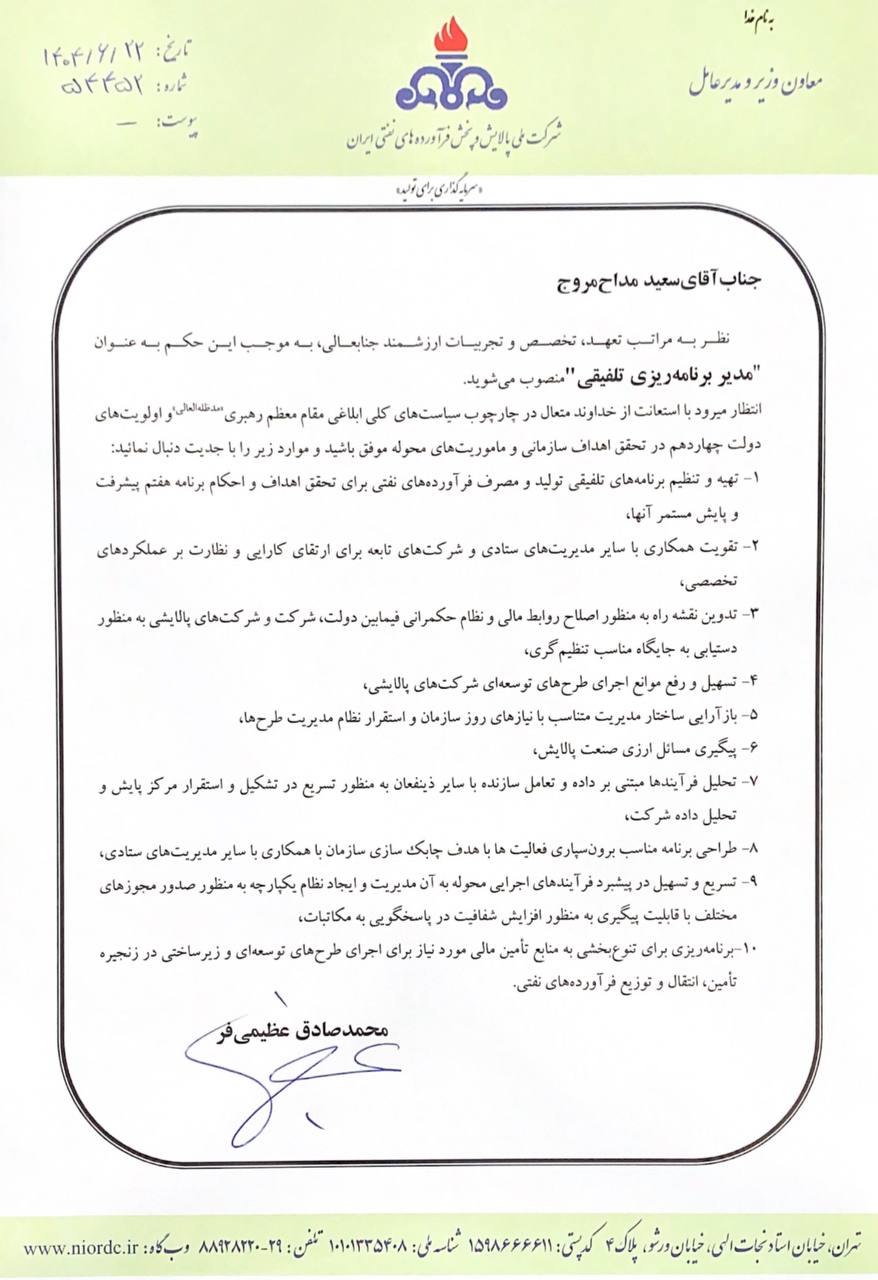 به نام خدا
معاون وزیر و مدیرعامل
تاریخ: ۱۴۰۴/۶/۲۲
شماره: ۵۴۴۵۲
پیوست: —
شرکت ملی پالایش و پخش فرآورده های نفتی ایران
«سرمایه گذاری برای تولید»
جناب آقای سعید مداح مروج
نظر به مراتب تعهد، تخصص و تجربیات ارزشمند جنابعالی، به موجب این حکم به عنوان
"مدیر برنامه‌ریزی تلفیقی" منصوب می‌شوید.
انتظار میرود با استعانت از خداوند متعال در چارچوب سیاست‌های کلی ابلاغی مقام معظم رهبری«مدظله‌العالی» و اولویت‌های
دولت چهاردهم در تحقق اهداف سازمانی و ماموریت‌های محوله موفق باشید و موارد زیر را با جدیت دنبال نمائید:
۱- تهیه و تنظیم برنامه‌های تلفیقی تولید و مصرف فرآورده‌های نفتی برای تحقق اهداف و احکام برنامه هفتم پیشرفت
و پایش مستمر آنها،
۲- تقویت همکاری با سایر مدیریت‌های ستادی و شرکت‌های تابعه برای ارتقای کارایی و نظارت بر عملکردهای
تخصصی،
۳- تدوین نقشه راه به منظور اصلاح روابط مالی و نظام حکمرانی فیمابین دولت، شرکت و شرکت‌های پالایشی به منظور
دستیابی به جایگاه مناسب تنظیم‌گری،
۴- تسهیل و رفع موانع اجرای طرح‌های توسعه‌ای شرکت‌های پالایشی،
۵- بازآرایی ساختار مدیریت متناسب با نیازهای روز سازمان و استقرار نظام مدیریت طرح‌ها،
۶- پیگیری مسائل ارزی صنعت پالایش،
۷- تحلیل فرآیندها مبتنی بر داده و تعامل سازنده با سایر ذینفعان به منظور تسریع در تشکیل و استقرار مرکز پایش و
تحلیل داده شرکت،
۸- طراحی برنامه مناسب برون‌سپاری فعالیت ها با هدف چابک سازی سازمان با همکاری با سایر مدیریت‌های ستادی،
۹- تسریع و تسهیل در پیشبرد فرآیندهای اجرایی محوله به آن مدیریت و ایجاد نظام یکپارچه به منظور صدور مجوزهای
مختلف با قابلیت پیگیری به منظور افزایش شفافیت در پاسخگویی به مکاتبات،
۱۰-برنامه‌ریزی برای تنوع‌بخشی به منابع تأمین مالی مورد نیاز برای اجرای طرح‌های توسعه‌ای و زیرساختی در زنجیره
تأمین، انتقال و توزیع فرآورده‌های نفتی.
محمدصادق عظیمی‌فر
تهران، خیابان استاد نجات الهی، خیابان ورشو، پلاک ۴ کد پستی: ۱۵۹۸۶۶۶۶۱۱ شناسه ملی: ۱۰۱۰۱۳۳۵۴۰۸ تلفن: ۲۹-۸۸۹۲۸۲۲۰ وب گاه: www.niordc.ir